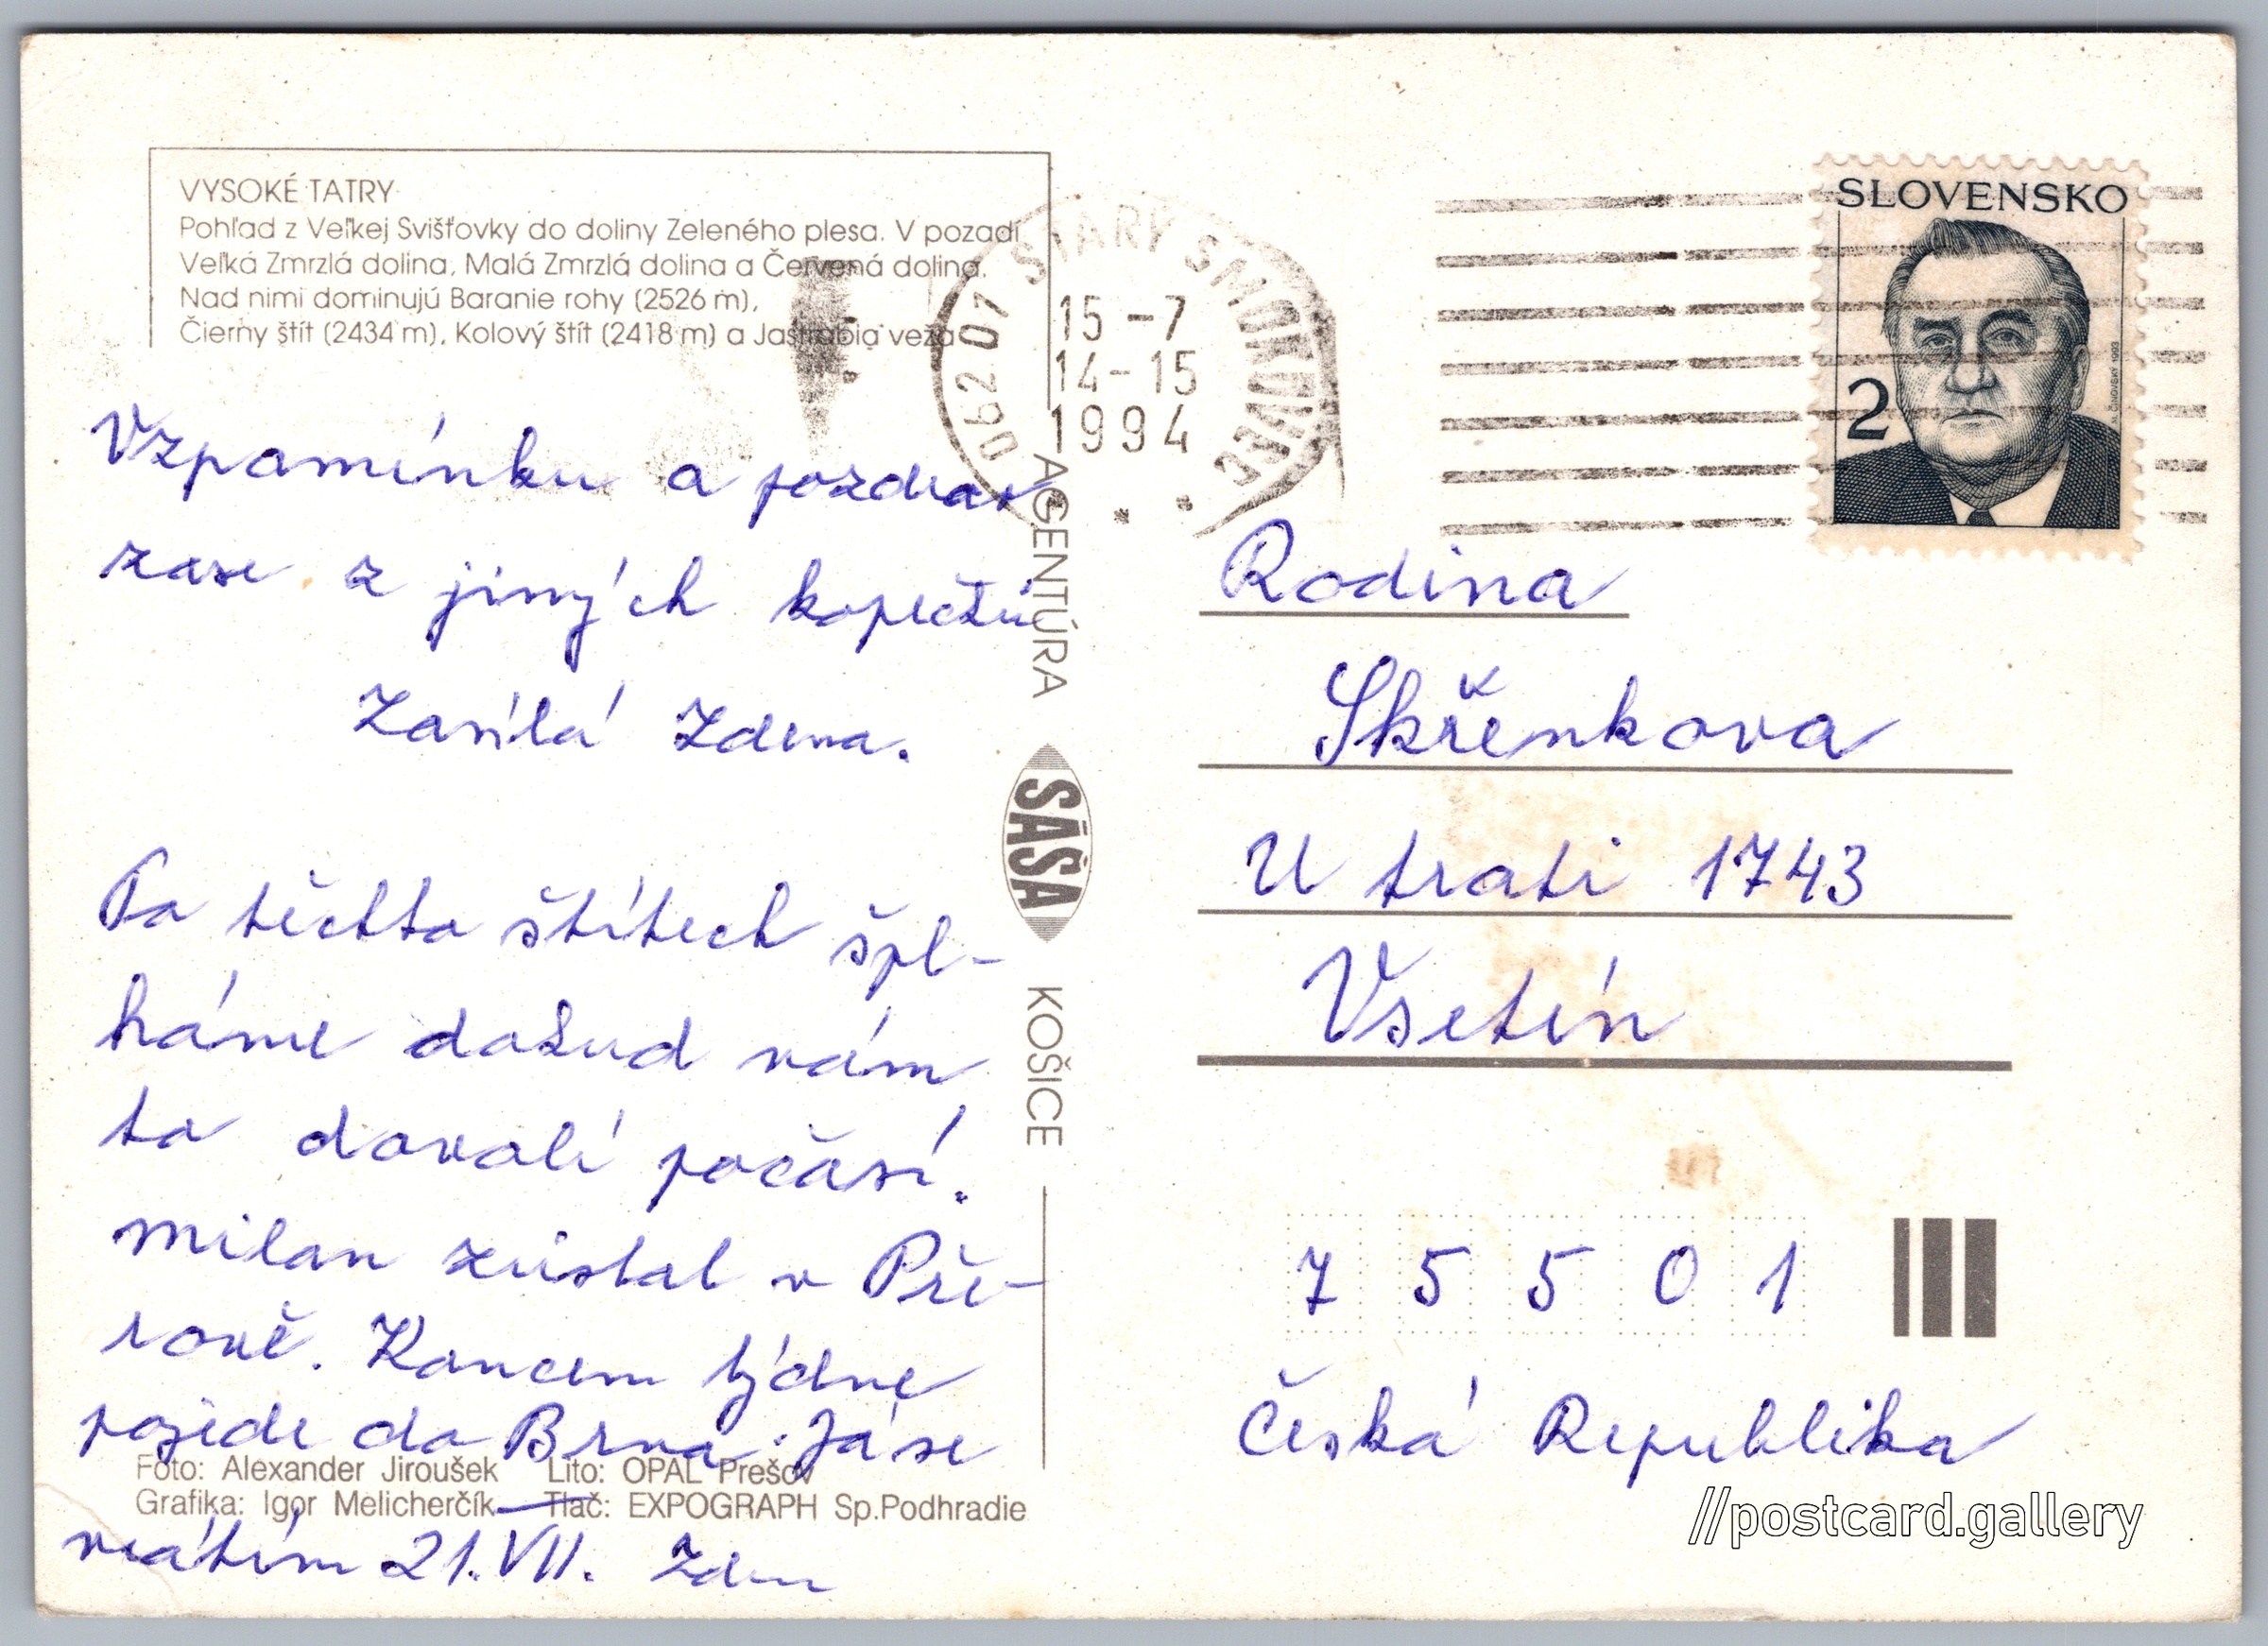 VYSOKÉ TATRY
Pohľad z Veľkej Svišťovky do doliny Zeleného plesa. V pozadí
Veľká Zmrzlá dolina, Malá Zmrzlá dolina a Červená dolina.
Nad nimi dominujú Baranie rohy (2526 m),
Čierny štít (2434 m), Kolový štít (2418 m) a Jastrabia veža
062 07 STARÝ SMOKOVEC
15 -7
14-15
1994
SLOVENSKO
2
Vzpomínku a pozdrav
zase z jiných kopečků
Zasílá Zdena.
Po těchto štítech špl-
háme dokud nám
to dovolí počasí.
Milan zůstal v Pře-
rově. Koncem týdne
pojede do Brna. Já se
vrátím 21. VII. Zden
Foto: Alexander Jiroušek Lito: OPAL Prešov
Grafika: Igor Melicherčík Tlač: EXPOGRAPH Sp.Podhradie
AGENTÚRA
SAŠA
KOŠICE
Rodina
Skřenkova
U trati 1743
Vsetín
7 5 5 0 1
Česká Republika
//postcard.gallery